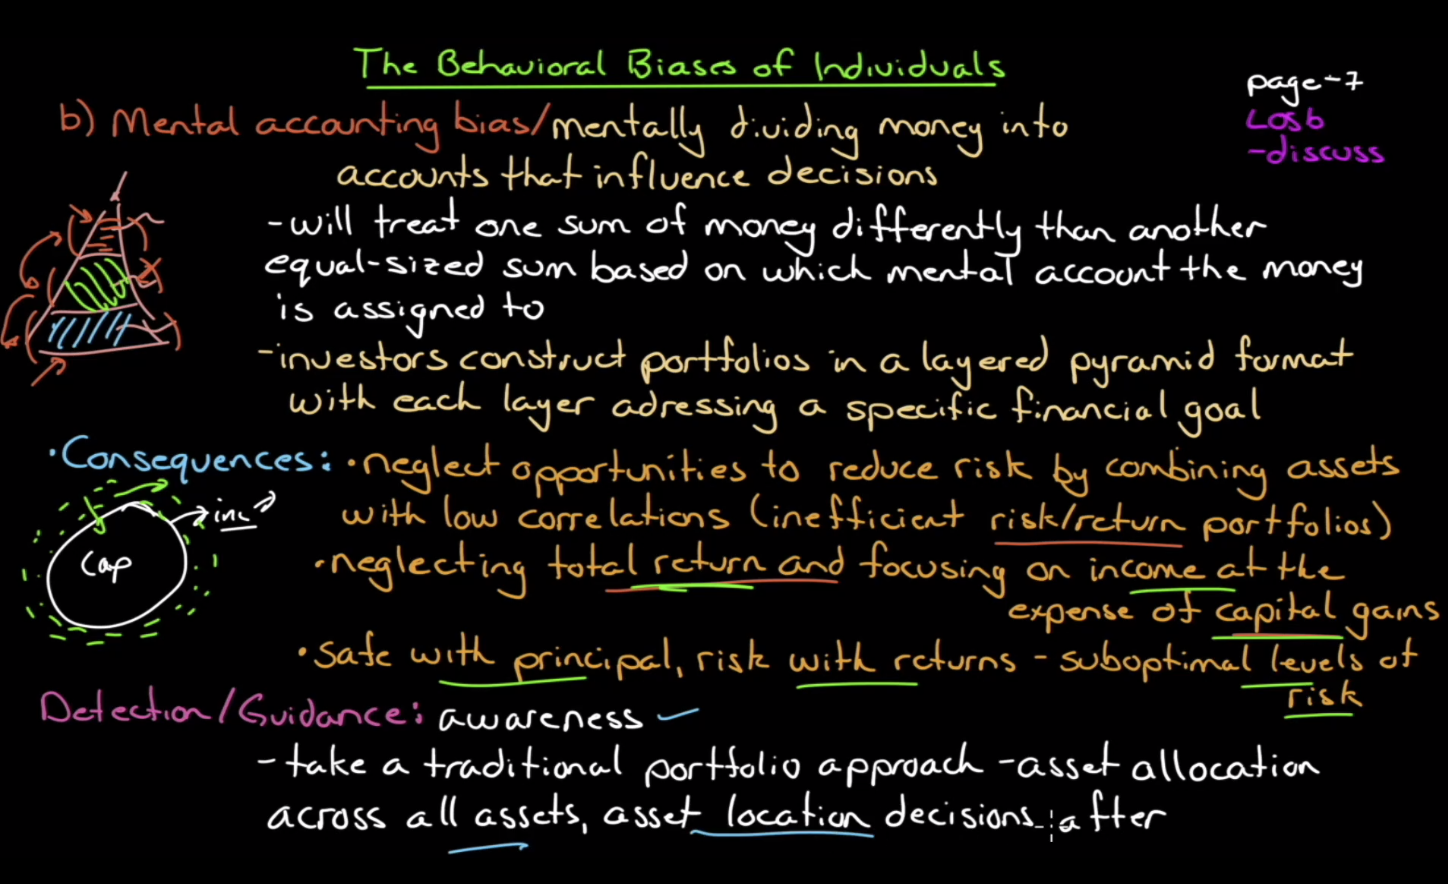 The Behavioral Biases of Individuals
page-7
LOS b
-discuss
b) Mental accounting bias/mentally dividing money into
accounts that influence decisions
-will treat one sum of money differently than another
equal-sized sum based on which mental account the money
is assigned to
-investors construct portfolios in a layered pyramid format
with each layer adressing a specific financial goal
•Consequences: •neglect opportunities to reduce risk by combining assets
with low correlations (inefficient risk/return portfolios)
•neglecting total return and focusing on income at the
expense of capital gains
inc
Cap
•safe with principal, risk with returns - suboptimal levels of
risk
Detection/Guidance: awareness
-take a traditional portfolio approach -asset allocation
across all assets, asset location decisions after